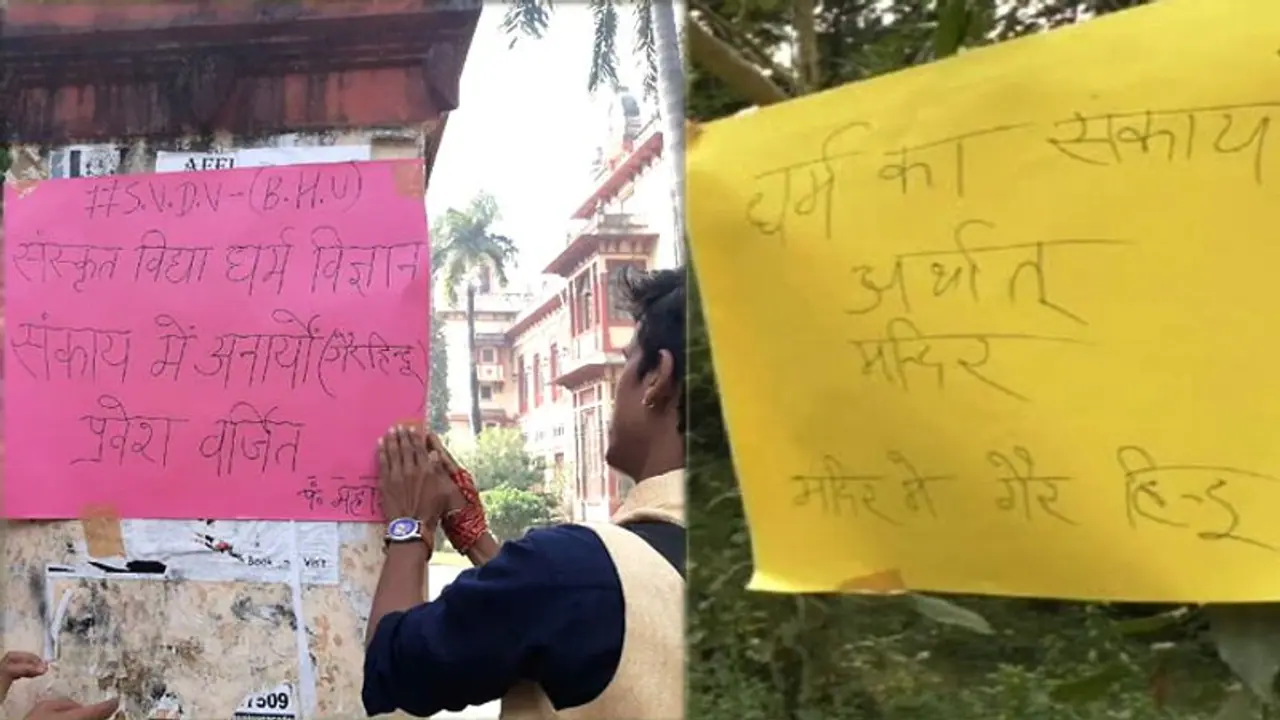 AFFI
#S.V.D.V-(B.H.U)
संस्कृत विद्या धर्म विज्ञान
संकाय में अनार्यों (गैरहिन्दू)
प्रवेश वर्जित
Book Visit
1509
धर्म का संकाय
अर्थात्
मन्दिर
मंदिर में गैर हिन्दू